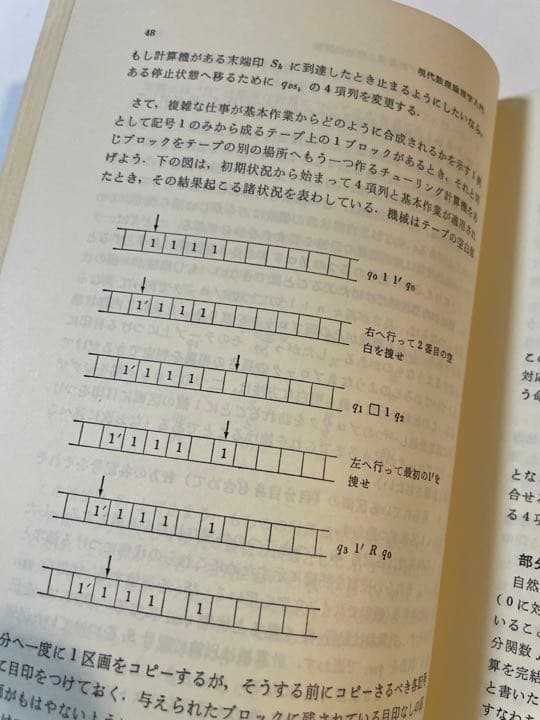 48
現代数理論理学入門
もし計算機がある末端印 Sk に到達したとき止まるようにしたいなら,
ある停止状態へ移るために qDSk の4項列を変更する.
さて, 複雑な仕事が基本作業からどのように合成されるかを示す1例
として記号1のみから成るテープ上の1ブロックがあるとき, それと同
じブロックをテープの別の場所へもう一つ作るチューリング計算機をあ
げよう. 下の図は, 初期状況から始まって4項列と基本作業が適用され
たとき, その結果起こる諸状況を表わしている. 機械はテープの空白部
1 1 1 1
q0 1 1′ q0
1′ 1 1 1
右へ行って2番目の空
白を捜せ
1′ 1 1 1
q1 □ 1 q2
1′ 1 1 1 1
左へ行って最初の1′を
捜せ
1′ 1 1 1 1
q3 1′ R q0
1′ 1 1 1 1
分へ一度に1区画をコピーするが, そうする前にコピーさるべき各記号
に目印をつけておく. 与えられたブロックに残されている目印なしの
がもはやないよう
こ
対応
う命
とな
合せ
る4項
部分
自然
(0に対
いるこ
分関数
算を完結
と書いた
すなわち